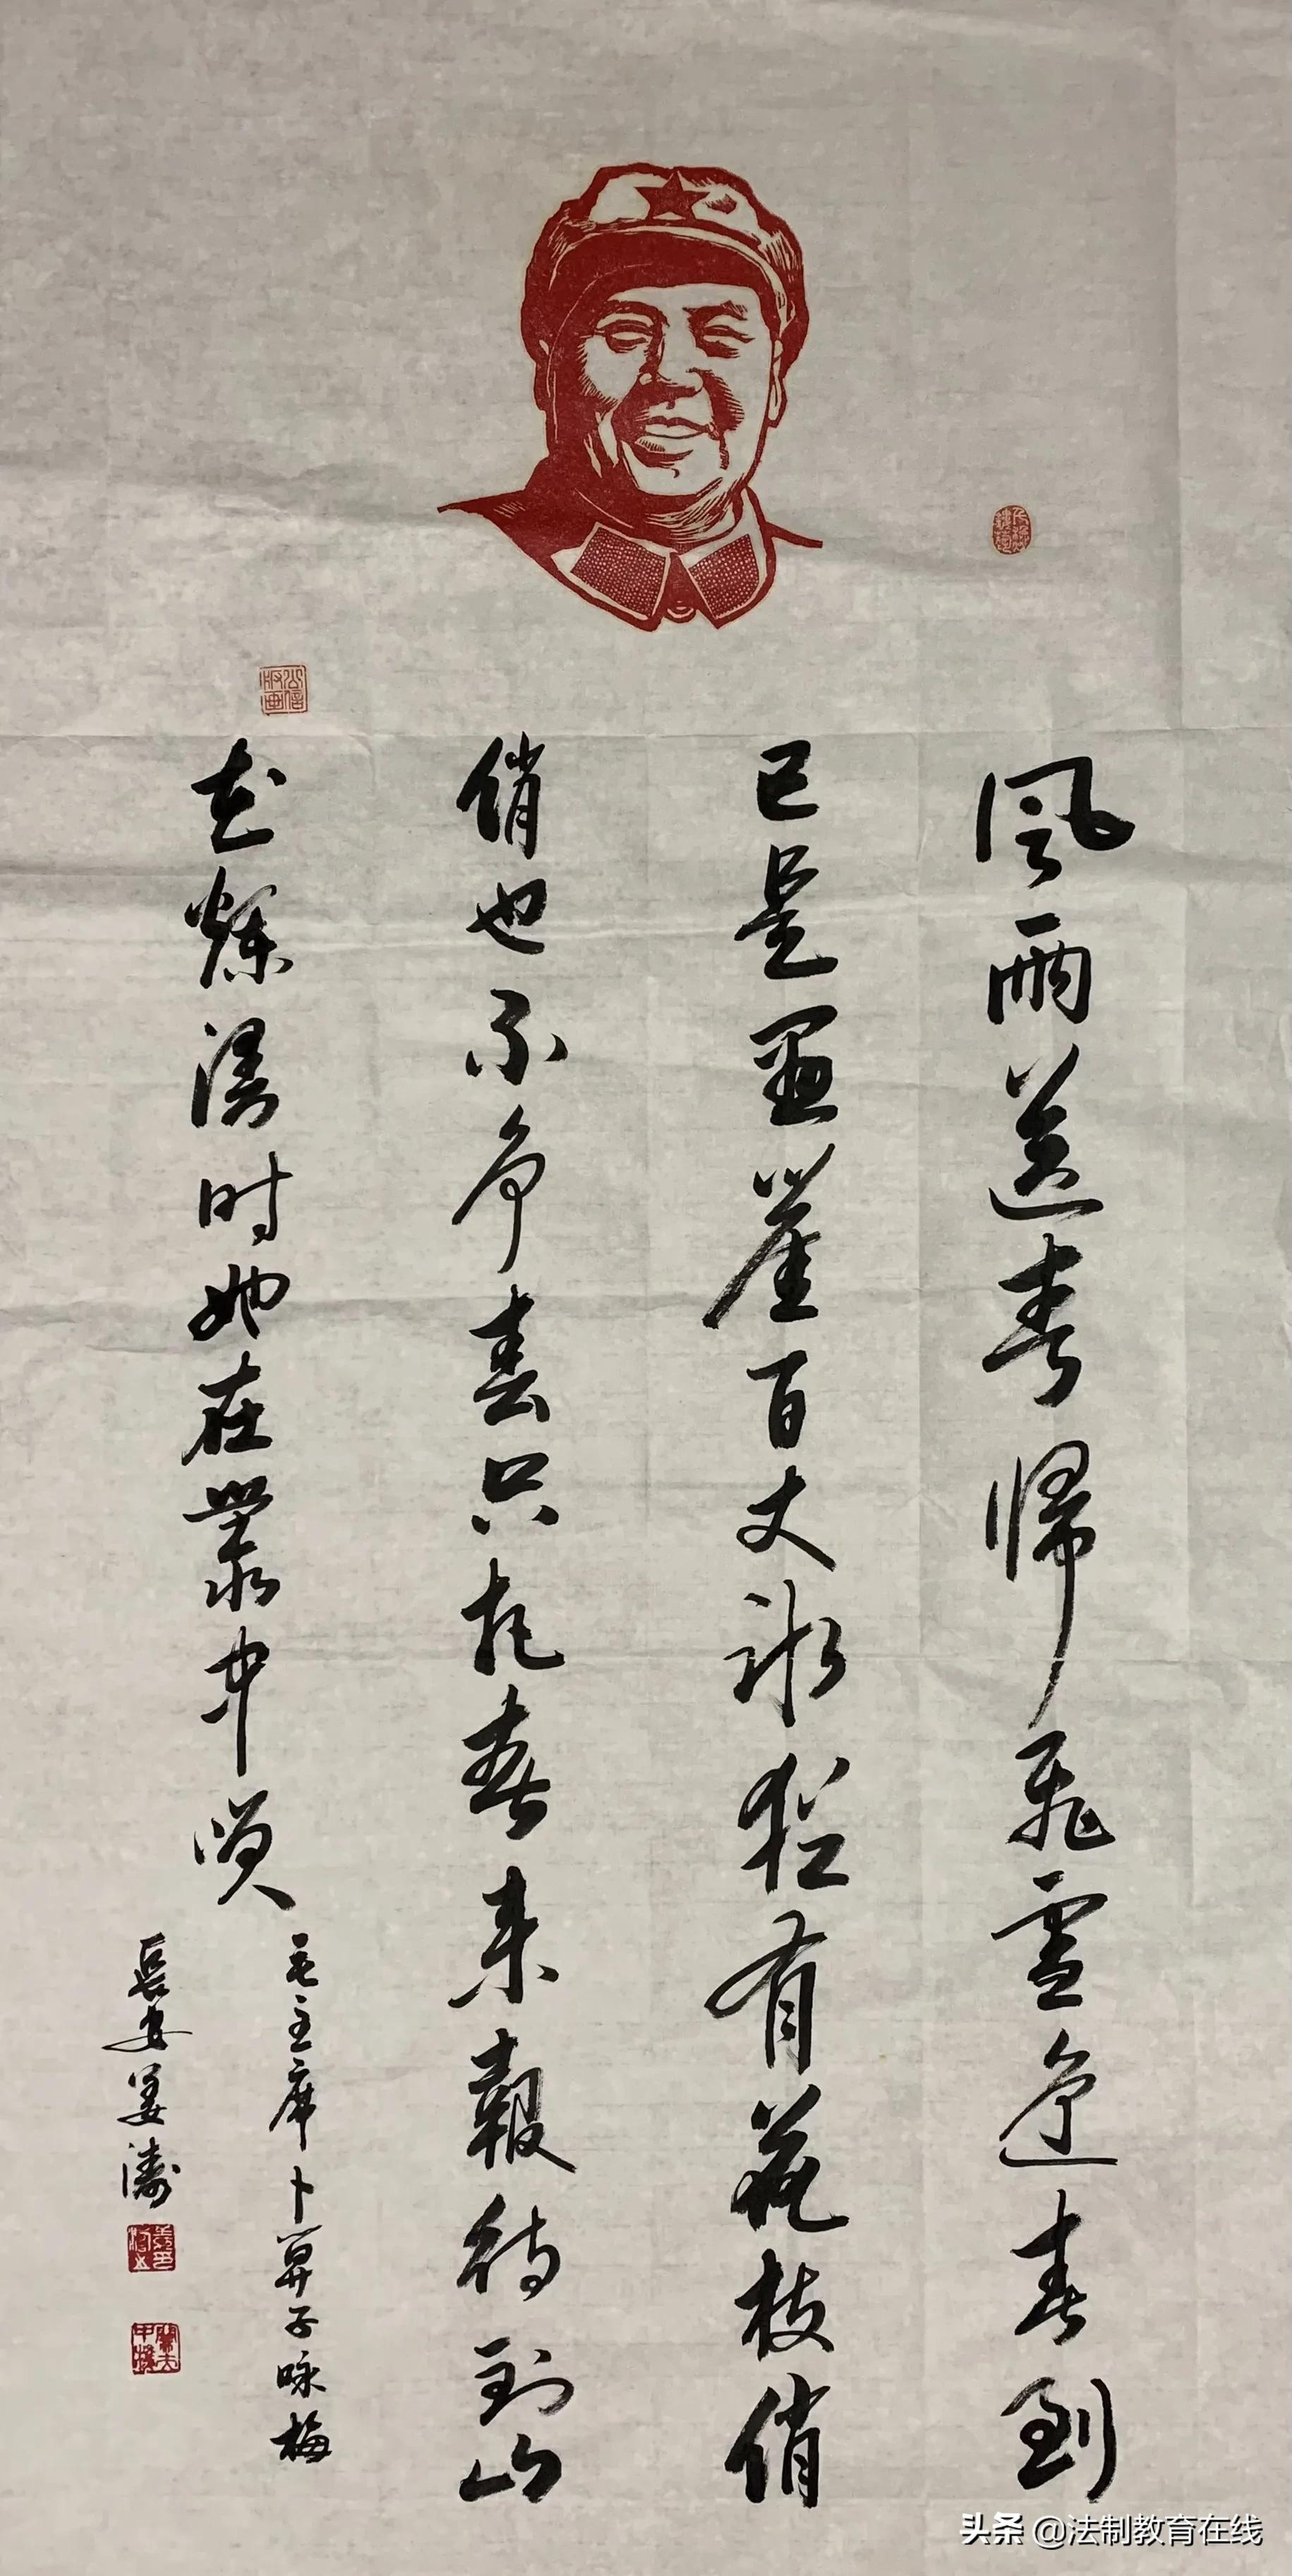 風雨送春帰飛雪迎春到
已是悬崖百丈冰猶有花枝俏
俏也不争春只把春来報待到山
花爛漫时她在叢中笑
毛主席卜算子咏梅
長安姜濤
公信版画
头条 @法制教育在线